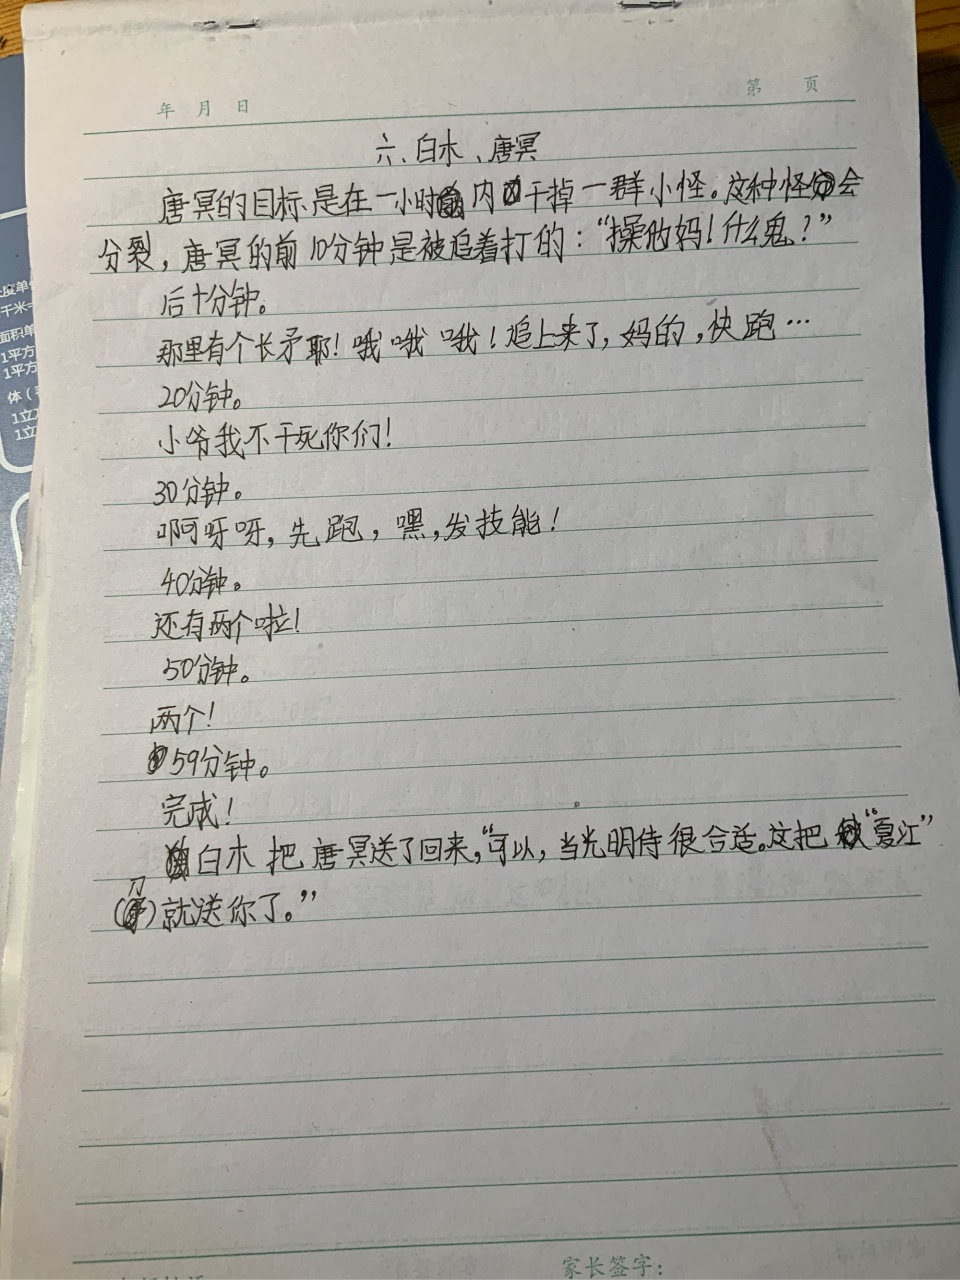 年 月 日 第 页
六、白木、唐冥
唐冥的目标是在一小时内干掉一群小怪。这种怪会
分裂，唐冥的前10分钟是被追着打的：“操他妈！什么鬼？”
后十分钟。
那里有个长矛耶！哦哦哦！追上来了，妈的，快跑…
20分钟。
小爷我不干死你们！
30分钟。
啊呀呀，先跑，嘿，发技能！
40分钟。
还有两个啦！
50分钟。
两个！
59分钟。
完成！
白木把唐冥送了回来，“可以，当光明侍很合适。这把“夏江”
（刀）就送你了。”
家长签字：
度单
千米=
面积单
1平方
1平方
体（
1立
1立